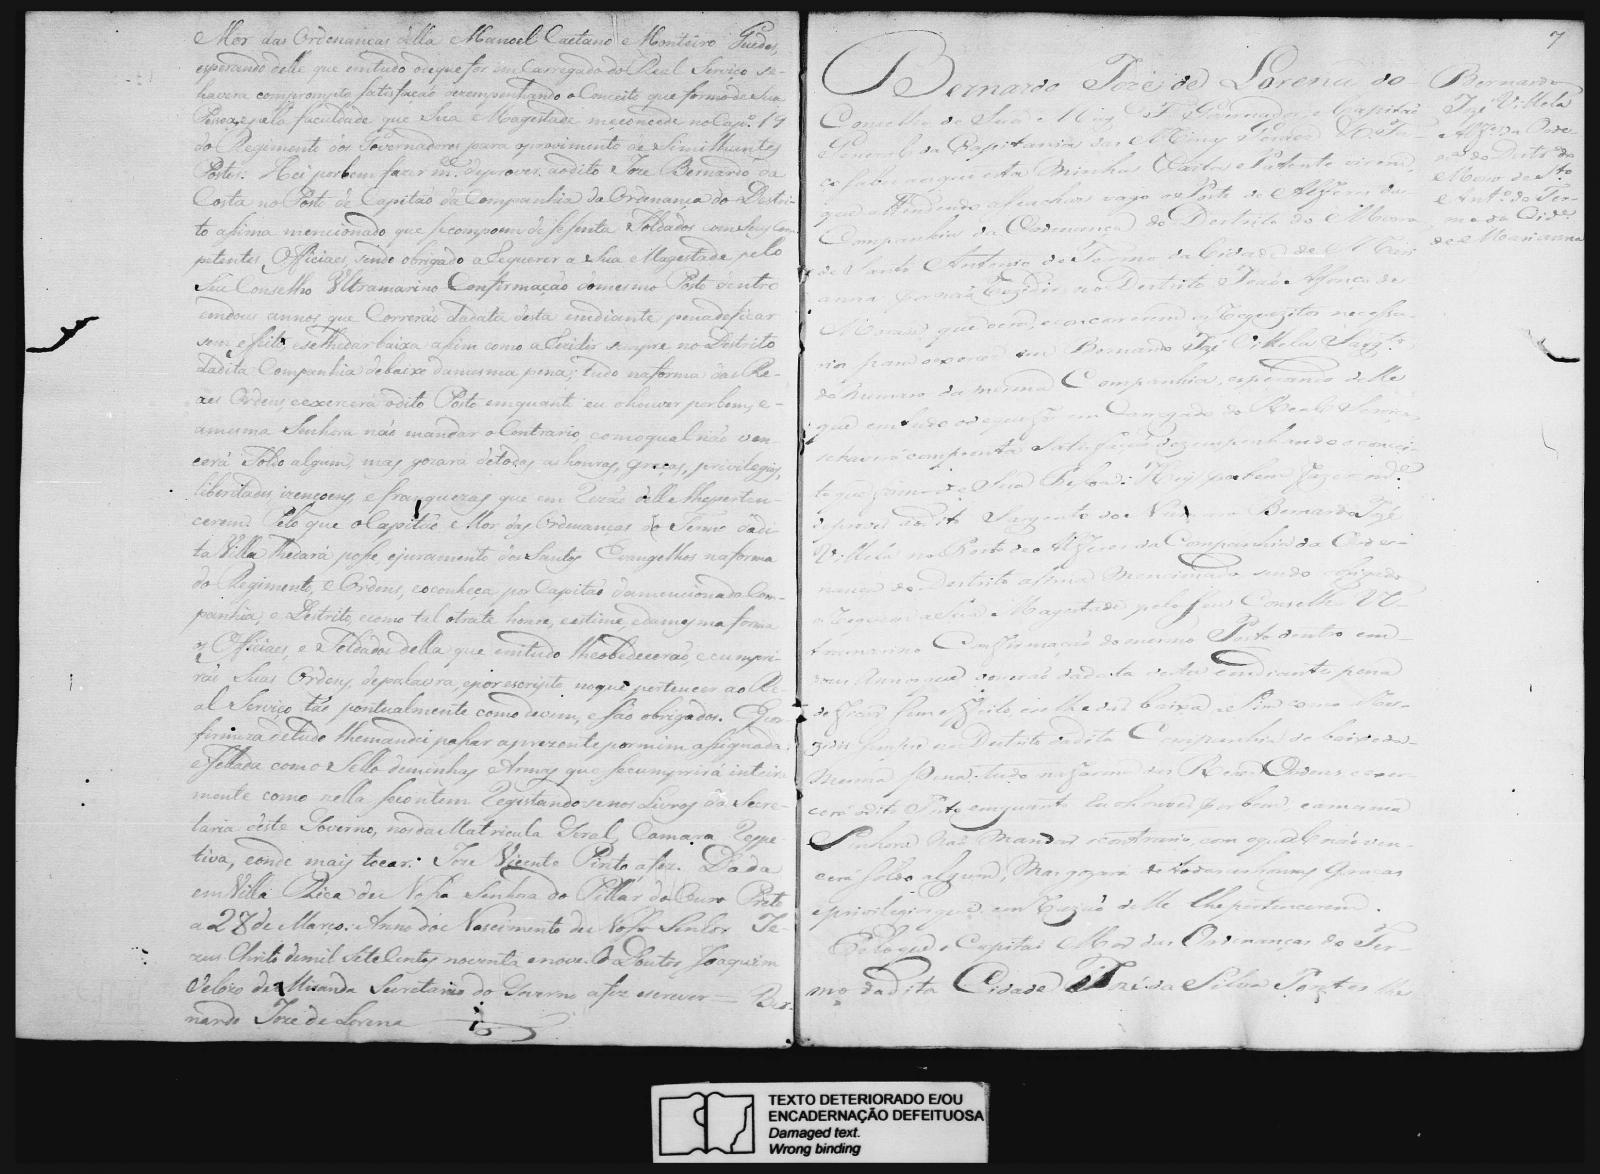 Mor das Ordenanças della Manoel Caetano Monteiro Guedes,
esperando delle que emtudo oque for emCarregado do Real Serviço se-
havera comprompta satisfação dezempenhando o Conceito que formo de Sua
Pessoa, e pella faculdade que Sua Magestade meconcede no Cap.º 19
do Regimento dos Governadores para oprovimento de Similhantes
Postos. Hei porbem fazer m.ce deprover aodito Joze Bernardo da
Costa no Posto de Capitão da Companhia da Ordenança do Destri-
to assima mencionado que secompoem de sessenta Soldados com seus Com
petentes Officiaes, sendo obrigado a Requerer a Sua Magestade pelo
Seu Conselho Ultramarino Confirmação domesmo Posto dentro
emdous annos que Correrão dadata desta emdiante penadeficar
sem effeito, eselhedar baixa assim como a Rezidir sempre no Destrito
dadita Companhia debaixo damesma pena; tudo naforma das Re-
aes Ordens, eexercerá odito Posto emquanto eu ohouver porbem, e-
amesma Senhora não mandar oContrario, comoqual não ven-
cerá Soldo algum, mas gozará detodas as honras, graças, privilegios,
liberdades, izençoens, e franquezas que em Rezão delle lhepertem-
cerem. Pelo que oCapitão Mor das Ordenanças do Termo dadi-
ta Villa lhedará posse, ejuramento dos Santos Evangelhos naforma
do Regimento, e Ordens, eoconheça por Capitão damencionada Com-
panhia, e Destrito, ecomo tal otrate honre, eestime, edamesma forma
os Officiaes, e Soldados della que emtudo lheobedecerão, ecumpri-
rão Suas Ordens, depalavra, eporescripto noque pertencer ao Re-
al Serviço tão pontualmente como devem, e são obrigados. Epor
firmeza detudo lhemandei passar aprezente pormim assignada,
eSellada como Sello deminhas Armas que secumprirá inteira
mente como nella secontem Registandose nos Livros da Secre-
taria deste Governo, nosda Matricula Geral, Camara Respe-
tiva, eonde mais tocar. Joze Vicente Pinto afes. Dada
em Villa Rica de Nossa Senhora do Pillar do Ouro Preto
a 28 de Março: Anno do Nascimento de Nosso Senhor Je-
zus Christo demil Sete Centos noventa enove. O Doutor Joaquim
Velozo de Miranda Secretario do Governo afez escrever = Ber-
nardo Joze de Lorena
7
Bernardo
Joze Villela
Alf.es da Orde
n.ça do Destr.º do
Morro de S.to
Ant.º do Ter-
mo da Cid.e
de Marianna
Bernardo Jozé de Lorena do
Conselho de Sua Mag.e F. Governador, e Capitão
General da Capitania das Minas Geraes &.ª Fa-
ço saber aos que esta Minha Carta Patente virem,
que attendendo aseachar vago o Posto de Alferes da
Companhia da Ordenança do Destrito do Morro
de Santo Antonio do Termo da Cidade de Mari
anna, por não Rezidir no Destrito João Affonço de
Moraes, que oera, e concorrerem os Requezitos necessa-
rios para oexercer em Bernardo Jozé Villela Sarg.to
do Numero da mesma Companhia, esperando delle
que emtudo ode que for em Carregado do Real Serviço
sehaverá comprompta Satisfação dezempenhando o concei-
to que formo de Sua Pessoa: Hey por bem fazer m.ce
deprover aodito Sargento do Numero Bernardo Jozé
Villela no Posto de Alferes da Companhia da Orde-
nança do Destrito assima Mencionado sendo obrigado
a Requerer a Sua Magestade pelo Seu Conselho Ul-
tramarino Confirmação do mesmo Posto dentro em-
dous Annos que correrão da data desta emdiante pena
de ficar sem effeito, eselhe dar baixa, assim como a Re-
zidir sempre no Destrito da dita Companhia debaixo da-
mesma pena: tudo na forma das Reaes Ordens, e exer-
cerá o dito Posto emquanto Eu o houver por bem, eamesma
Senhora não Mandar o contrario, com o qual não ven-
cerá soldo algum, Mas gozará de todas as honras, Graças
e privilegios que em Rezão delle lhe pertencerem.
Pelo que o Capitão Mor das Ordenanças do Ter-
mo dadita Cidade Jozé da Silva Pontes lhe
TEXTO DETERIORADO E/OU
ENCADERNAÇÃO DEFEITUOSA
Damaged text.
Wrong binding